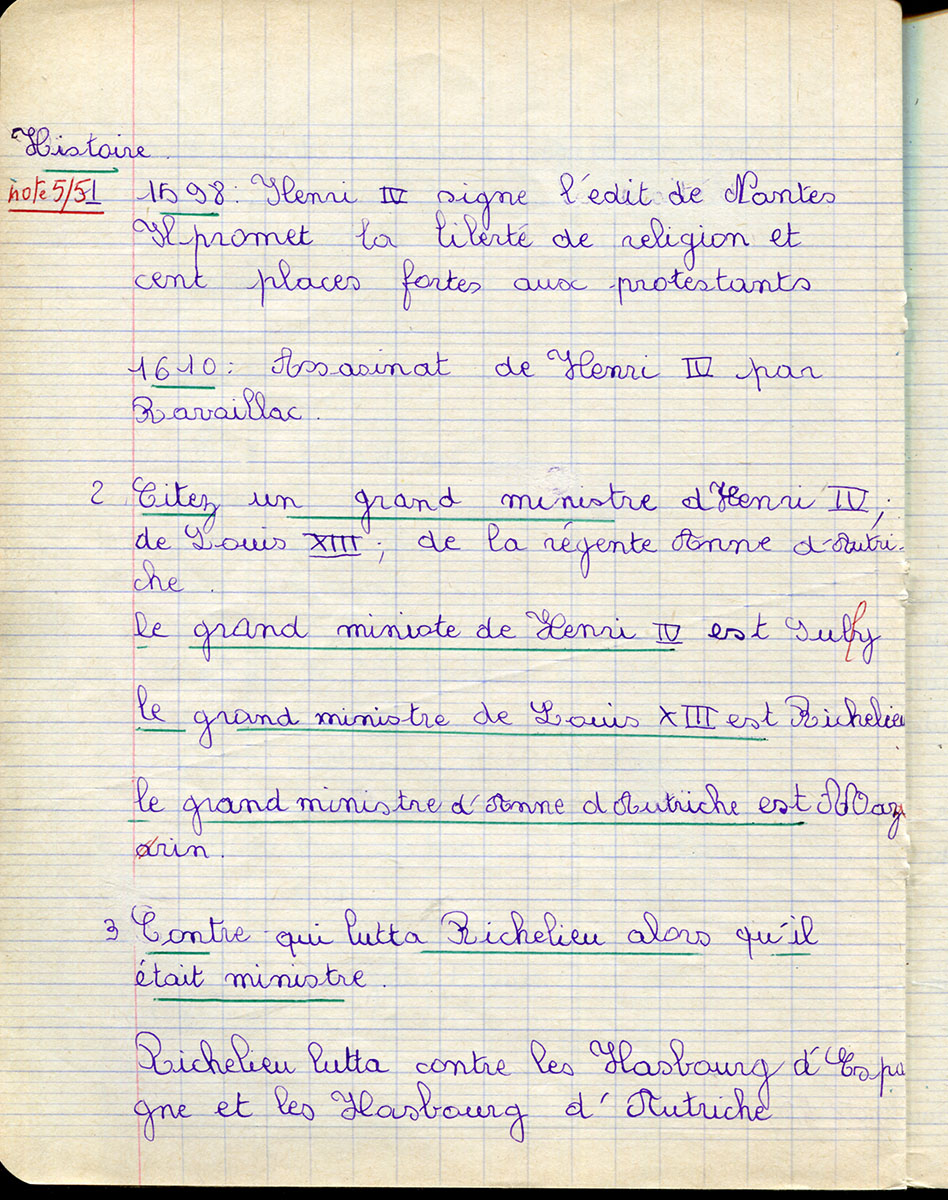 Histoire.
note 5/51
1598: Henri IV signe l'édit de Nantes
Il promet la liberté de religion et
cent places fortes aux protestants
1610: Assasinat de Henri IV par
Ravaillac.
2 Citez un grand ministre d'Henri IV;
de Louis XIII; de la régente Anne d'Autri-
che.
le grand ministe de Henri IV est Sully
le grand ministre de Louis XIII est Richelieu
le grand ministre d'Anne d'Autriche est Maz
arin.
3 Contre qui lutta Richelieu alors qu'il
était ministre.
Richelieu lutta contre les Hasbourg d'Espa
gne et les Hasbourg d'Autriche